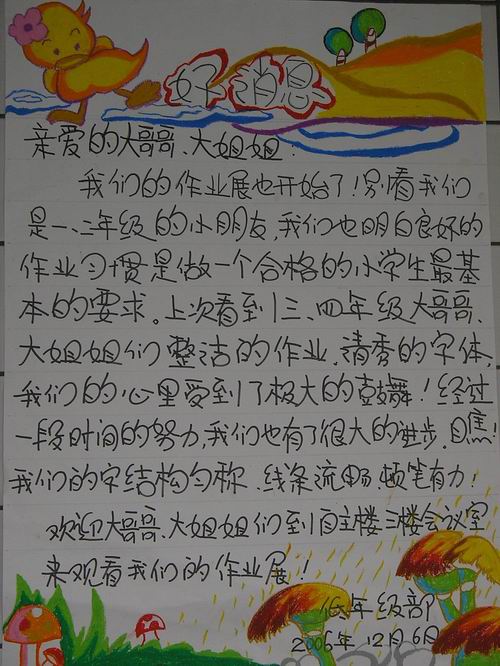 好消息
亲爱的大哥哥、大姐姐:
我们的作业展也开始了!别看我们
是一、二年级的小朋友,我们也明白良好的
作业习惯是做一个合格的小学生最基
本的要求。上次看到三、四年级大哥哥、
大姐姐们整洁的作业,清秀的字体,
我们的心里受到了极大的鼓舞!经过
一段时间的努力,我们也有了很大的进步。瞧!
我们的字结构匀称、线条流畅、顿笔有力!
欢迎大哥哥、大姐姐们到自主楼三楼会议室
来观看我们的作业展!
低年级部
2006年12月6日